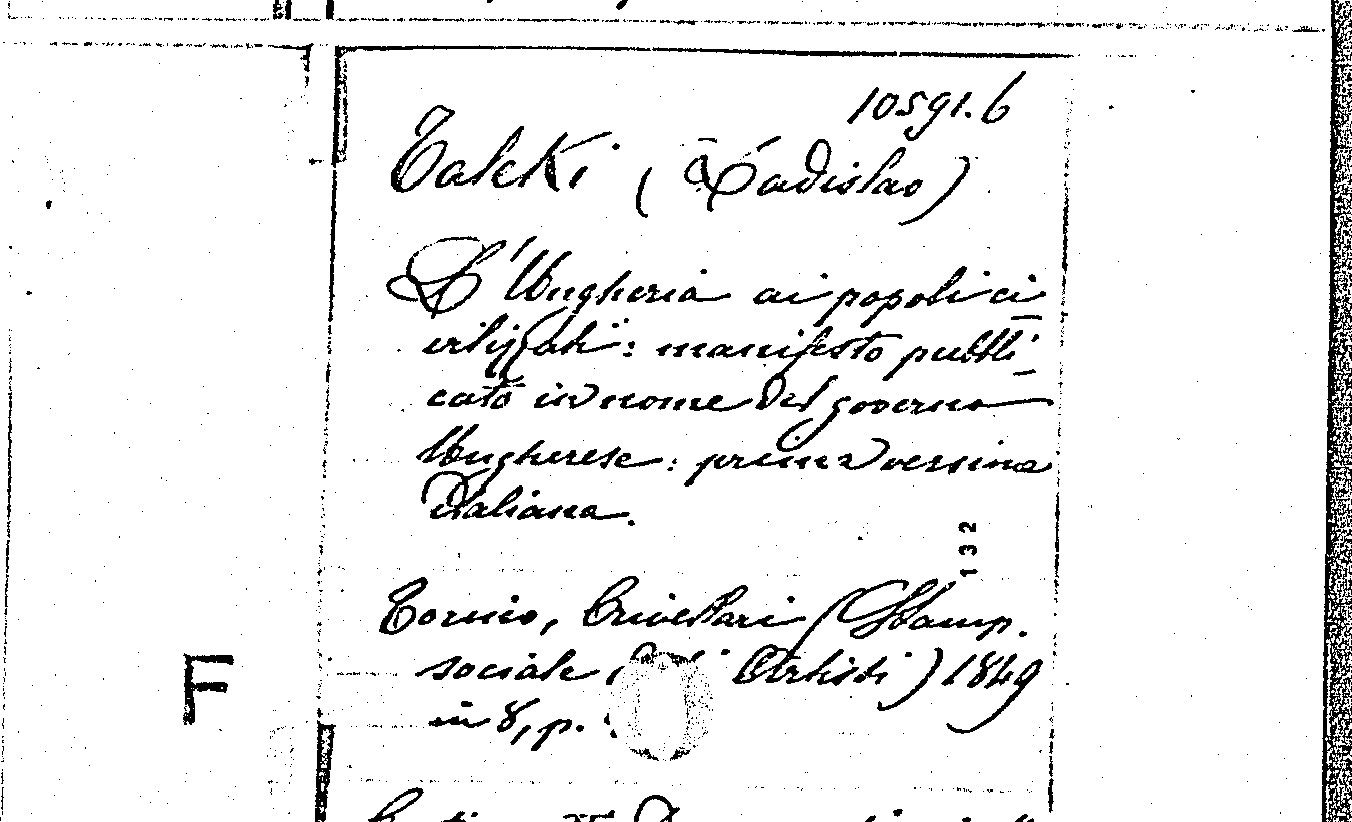 10591.6
Taleki (Ladislao)
L'Ungheria ai popoli ci-
vilizzati: manifesto pubbli-
cato in nome del governo
Ungherese: prima versione
Italiana.
132
Torino, Crivellari (Stamp.
sociale Artisti) 1849
in 8, p.
F